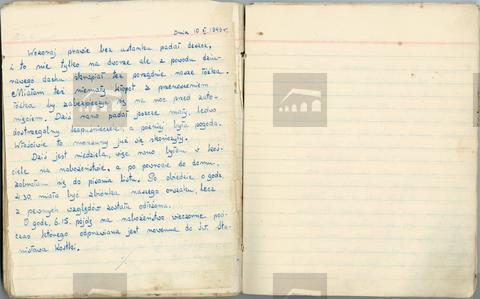 Dnia 10 X. 1943 r.
Wczoraj prawie bez ustanku padał deszcz,
i to nie tylko na dworze ale z powodu dziu-
rawego dachu skrapiał też porządnie nasze łóżka.
Miałam też niemały kłopot z przenoszeniem
łóżka by zabezpieczyć się na noc przed zato-
pieniem. Dziś rano padał jeszcze mały, ledwo
dostrzegalny kapuśniaczek, a później była pogoda.
Właściwie to monsuny już się skończyły.
Dziś jest niedziela, więc rano byłam w koś-
ciele na nabożeństwie, a po powrocie do domu,
zabrałam się do pisania listu. Po obiedzie o godz.
4.30 miała być zbiórka naszego orszaku, lecz
z pewnych względów została odłożona.
O godz. 6.15. pójdę na nabożeństwo wieczorne pod-
czas którego odprawiana jest nowenna do św. Sta-
nisława Kostki.